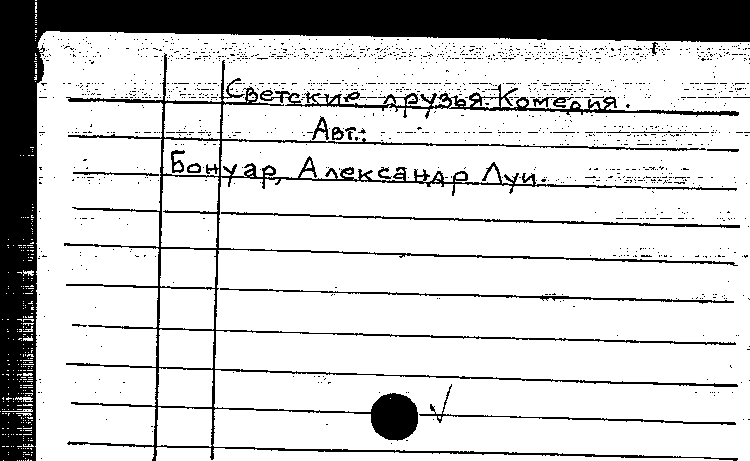 Светские друзья. Комедия.
Авт.:
Бонуар, Александр Луи.